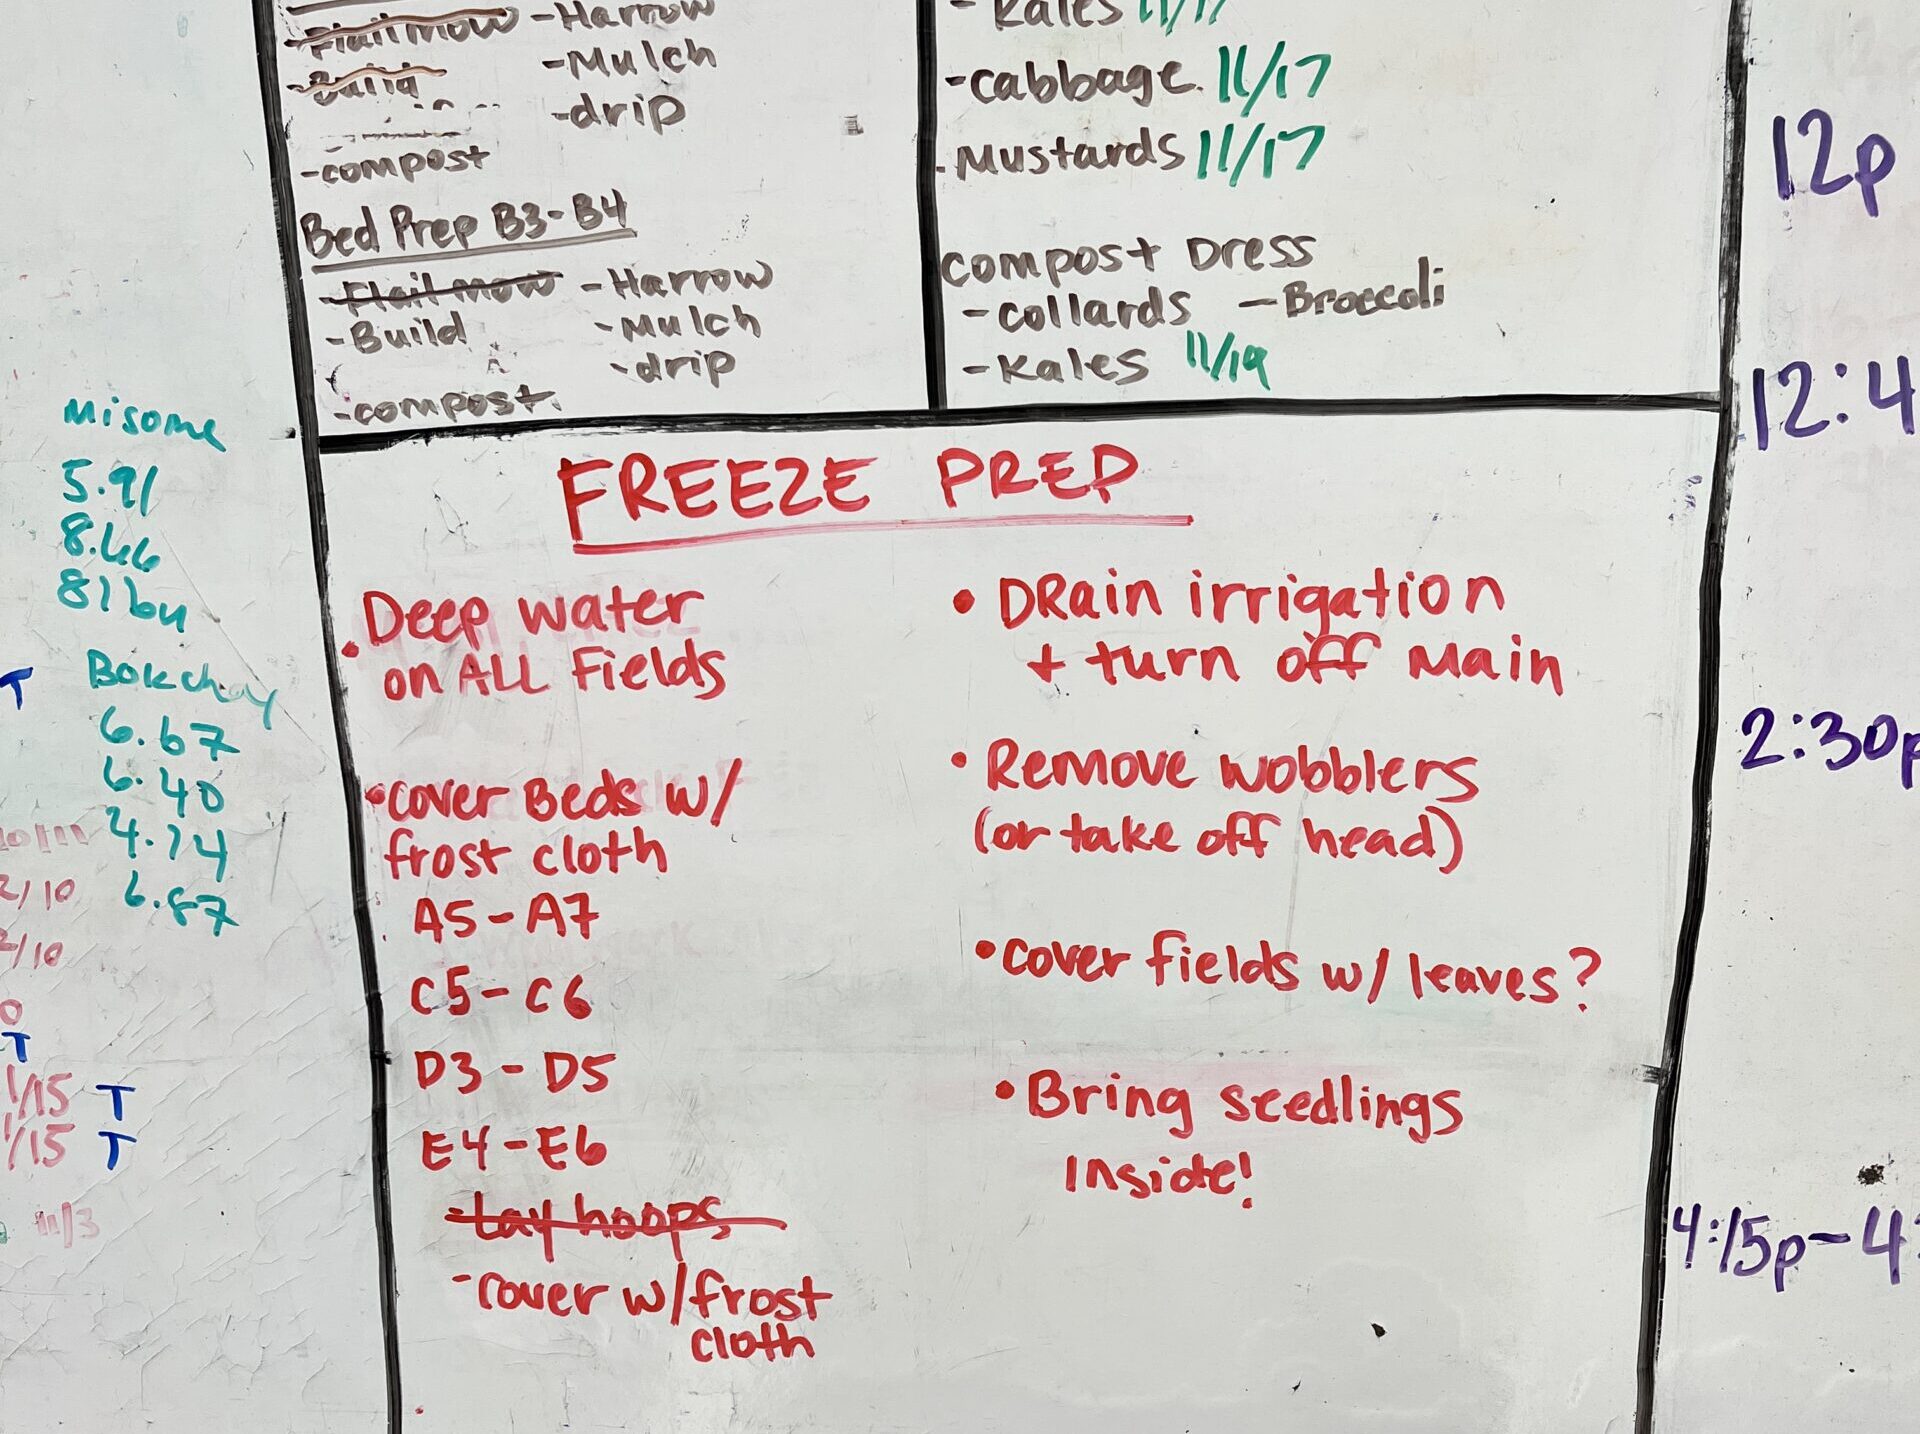 - Flail mow - Harrow
- Build - Mulch
- drip
- compost
Bed Prep B3-B4
- Flail mow - Harrow
- Build - Mulch
- drip
- compost.
- Kales 11/17
- cabbage. 11/17
- Mustards 11/17
compost Dress
- collards - Broccoli
- Kales 11/19
Misome
5.91
8.66
Bokchoy
6.67
6.40
4.74
6.87
T
2/10
T
1/15 T
1/15 T
11/3
FREEZE PREP
• Deep water
on ALL Fields
• cover Beds w/
frost cloth
A5-A7
C5-C6
D3-D5
E4-E6
- Lay hoops
- cover w/frost
cloth
• DRain irrigation
+ turn off Main
• Remove wobblers
(or take off head)
• cover fields w/ leaves?
• Bring seedlings
inside!
12p
12:4
2:30p
4:15p-4: